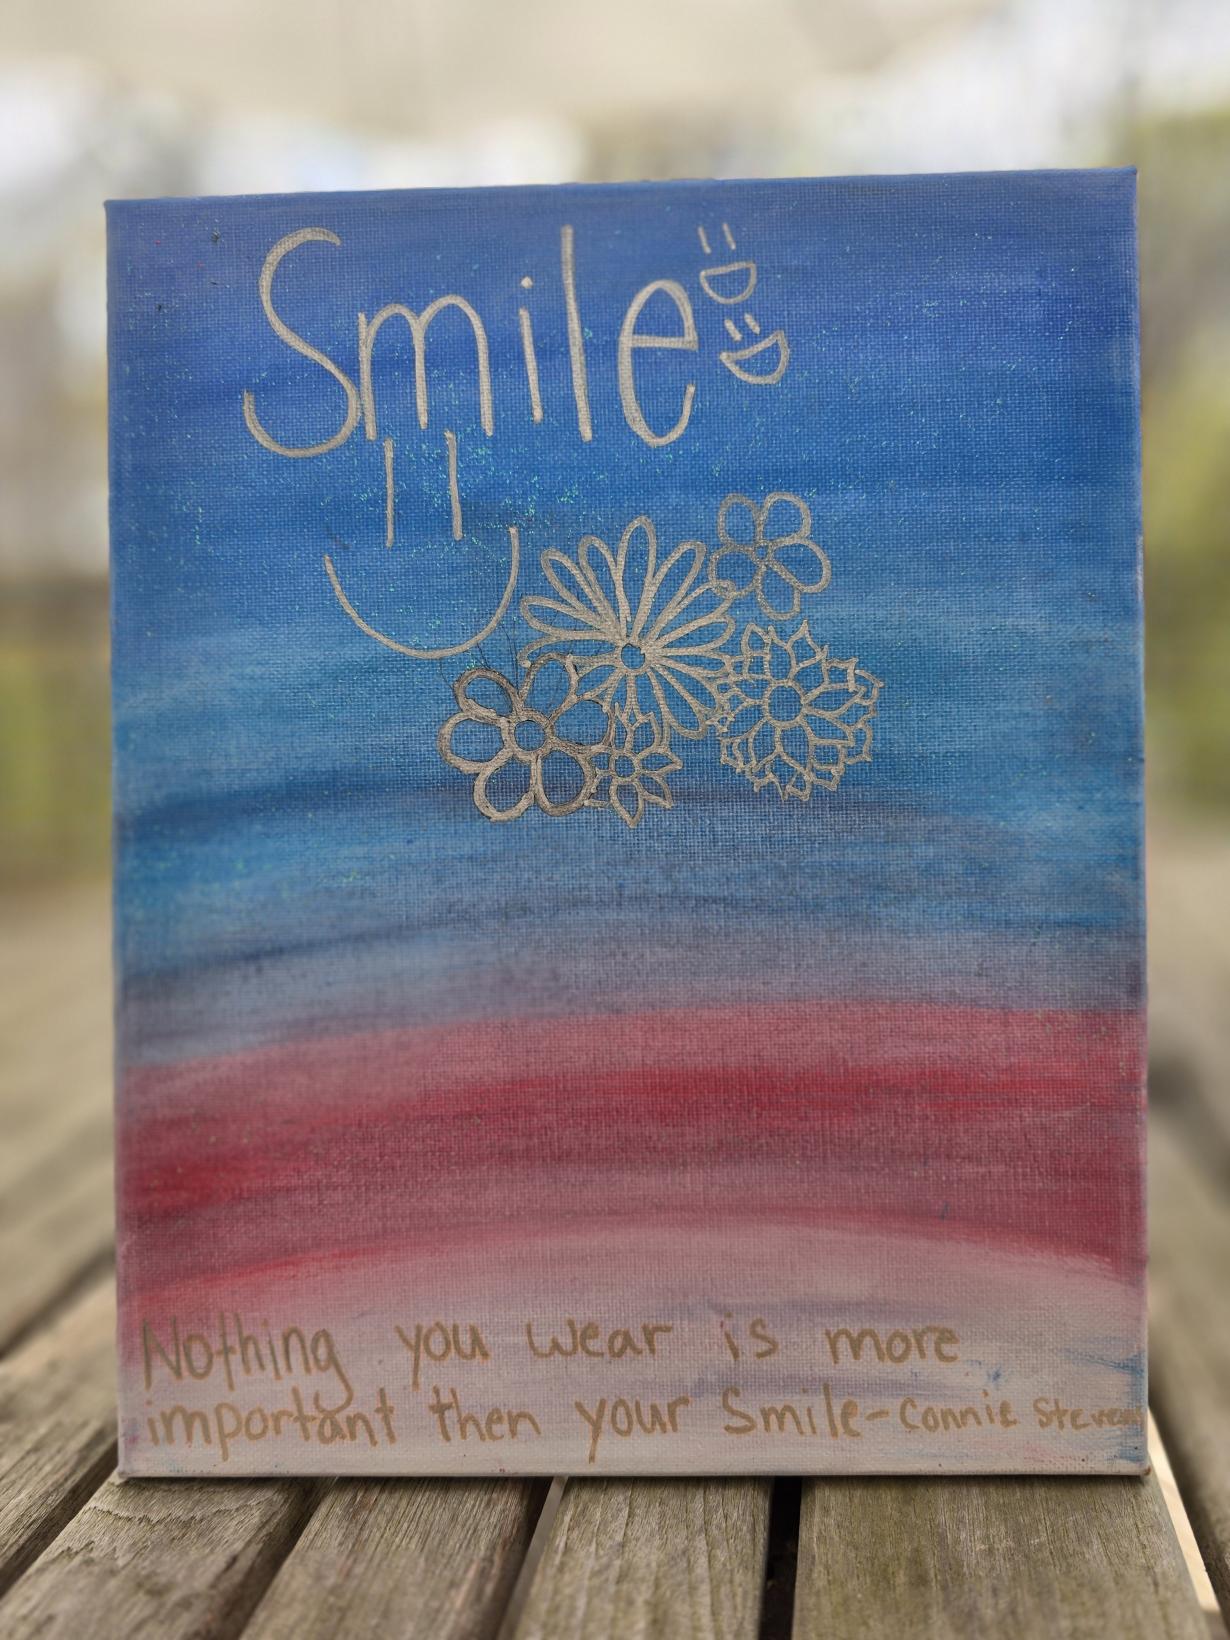 Smile
Nothing you wear is more
important then your Smile-Connie Stevens